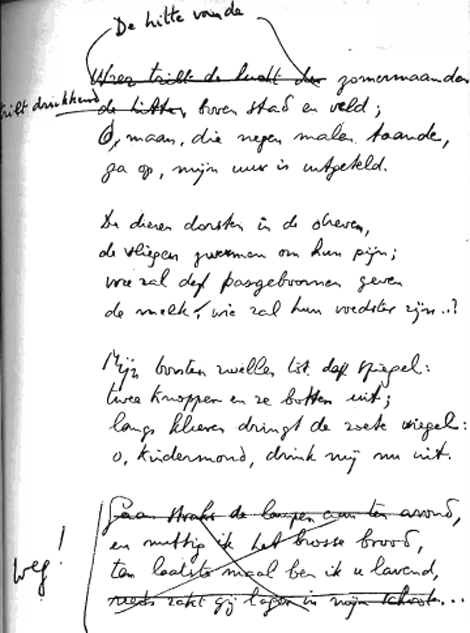 De hitte van de
Weer trilt de lucht der zomermaanden
trilt drukkend de hitte, boven stad en veld;
O, maan, die negen malen taande,
ga op, mijn uur is uitgeteld.
De dieren dorsten in de dreven,
de vliegen zwermen om hun pijn;
wie zal de pasgeboornen geven
de melk, wie zal hun voedster zijn..?
Mijn borsten zwellen tot de spiegel:
twee knoppen en ze botten uit;
langs klieren dringt de zoete wiegel:
o, kindermond, drink mij nu uit.
Gaan straks de lampen aan ten avond,
en nuttig ik het brosse brood,
ten laatste maal ben ik u lavend,
reeds zakt gij lager in mijn schoot...
weg!